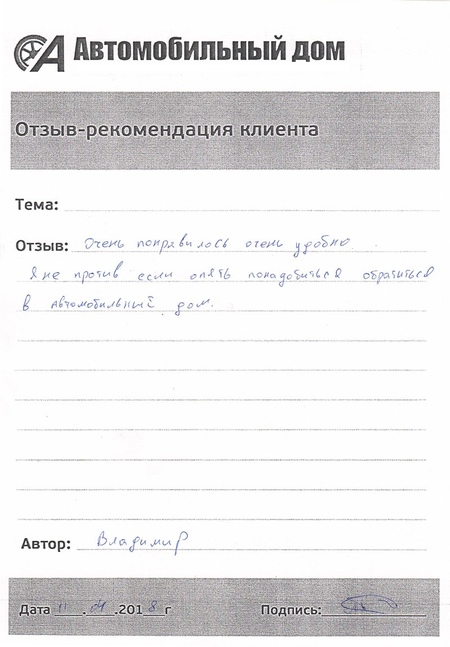 Автомобильный дом
Отзыв-рекомендация клиента
Тема:
Отзыв: Очень понравилось очень удобно.
Я не против если опять понадобиться обратиться
в Автомобильный дом.
Автор: Владимир
Дата 11.04.2018г Подпись: